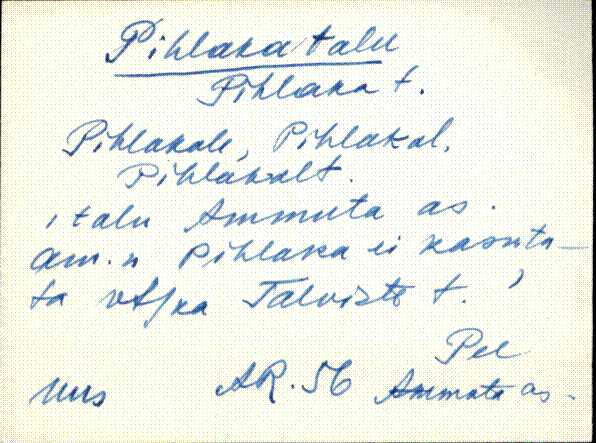 Pihlaka talu
Pihlaka t.
Pihlakale, Pihlakal,
Pihlakalt.
, talu Ammuta as.
am.n Pihlaka ei kasuta-
ta vt/ka Talviste t.,
Pel
Uus AR. 56 Ammuta as.